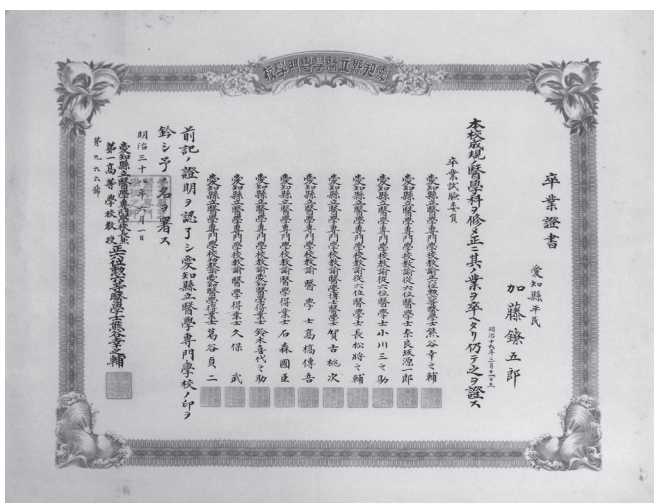 愛知縣立醫學專門學校
卒業證書
愛知縣平民
加藤鐐五郎
明治十六年三月十一日生
本校成規ノ醫學科ヲ修メ正ニ其ノ業ヲ卒ヘタリ仍テ之ヲ證ス
卒業試驗委員
愛知縣立醫學專門學校教諭正六位勲六等醫學士熊谷幸之輔
愛知縣立醫學專門學校教諭從六位醫學士奈良坂源一郎
愛知縣立醫學專門學校教諭從六位醫學士小川三之助
愛知縣立醫學專門學校教諭從六位醫學士長松將之輔
愛知縣立醫學專門學校教諭 賀古桃次
愛知縣立醫學專門學校教諭 醫學士高橋傳吾
愛知縣立醫學專門學校教諭醫學得業士石森國臣
愛知縣立醫學專門學校教諭 鈴木喜代之助
愛知縣立醫學專門學校教諭醫學得業士久保 武
愛知縣立醫學專門學校 葛谷貞二
前記ノ證明ヲ認了シ愛知縣立醫學專門學校ノ印ヲ
鈐シ予ノ名ヲ署ス
明治三十八年 月一日
愛知縣立醫學專門學校長
第一高等學校教授正六位勲六等醫學士熊谷幸之輔
第九六六號